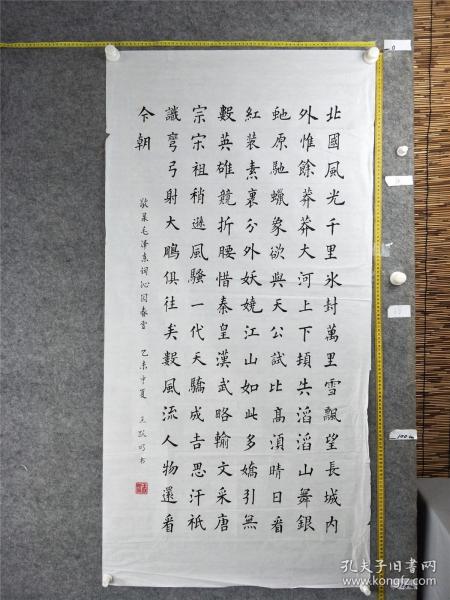 北國風光千里氷封萬里雪飄望長城内
外惟餘莽莽大河上下頓失滔滔山舞銀
虵原馳蠟象欲與天公試比高須晴日看
紅裝素裹分外妖嬈江山如此多嬌引無
數英雄競折腰惜秦皇漢武略輸文采唐
宗宋祖稍遜風騷一代天驕成吉思汗祇
識彎弓射大鵰俱往矣數風流人物還看
今朝
敬录毛泽东词沁园春雪 乙未中夏 王书
0
100cm
孔夫子旧书网